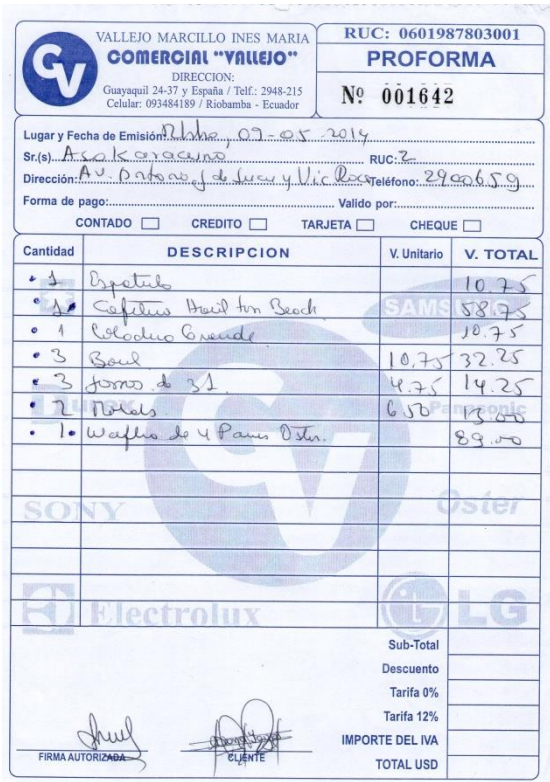 CV
VALLEJO MARCILLO INES MARIA
COMERCIAL "VALLEJO"
DIRECCION:
Guayaquil 24-37 y España / Telf.: 2948-215
Celular: 093484189 / Riobamba - Ecuador
RUC: 0601987803001
PROFORMA
Nº 001642
Lugar y Fecha de Emisión: 09-05-2014
Sr.(s) RUC: 2
Dirección: Av. y Teléfono: 2900659
Forma de pago: Valido por:
CONTADO CREDITO TARJETA CHEQUE
Cantidad DESCRIPCION V. Unitario V. TOTAL
1 Espatula 10.75
1 Beach 58.75
1 Grande 10.75
3 Boul 10.75 32.25
3 de 4.75 14.25
2 Molds 6.50 13.00
1 de 4 Panes Oster. 89.00
SAMSUNG
Durex
Panasonic
CV
SONY
Oster
Electrolux
LG
Sub-Total
Descuento
Tarifa 0%
Tarifa 12%
IMPORTE DEL IVA
TOTAL USD
FIRMA AUTORIZADA CLIENTE